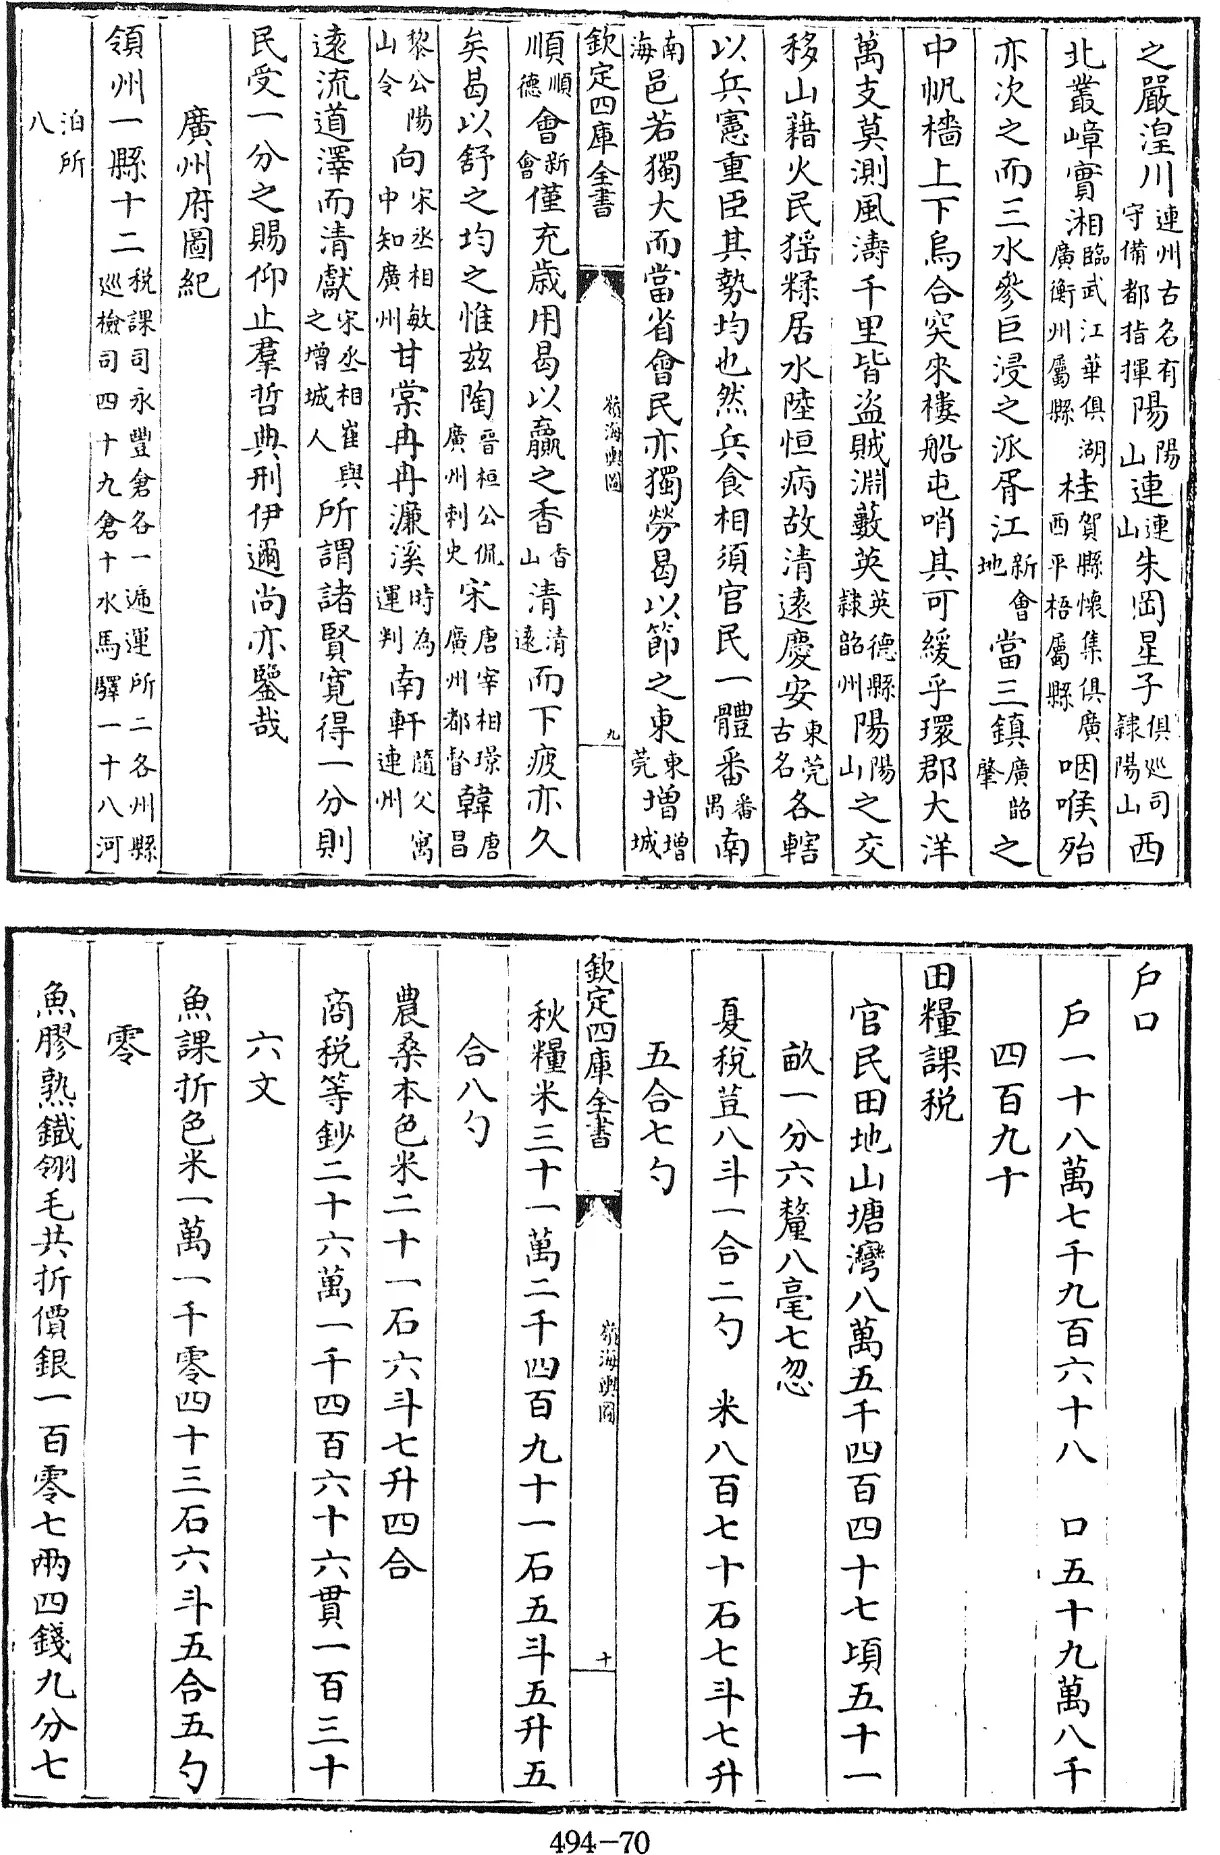 之嚴湟川連州古名有守備都指揮陽山陽山連連山朱岡星子俱巡司隸陽山西
北叢嶂實湘臨武江華俱湖廣衡州屬縣桂賀縣懷集俱廣西平梧屬縣咽喉殆
亦次之而三水參巨浸之派胥江新會地當三鎮廣韶肇之
中帆檣上下烏合突來樓船屯哨其可緩乎環郡大洋
萬支莫測風濤千里皆盜賊淵藪英英德縣隸韶州陽陽山之交
移山藉火民猺糅居水陸恒病故清遠慶安東莞古名各轄
以兵憲重臣其勢均也然兵食相須官民一體番番禺南
南海邑若獨大而當省會民亦獨勞曷以節之東東莞增增城
欽定四庫全書
嶺海輿圖
九
順順德會新會僅充歲用曷以贏之香香山清清遠而下疲亦久
矣曷以舒之均之惟茲陶晉桓公侃廣州刺史宋唐宰相璟廣州都督韓唐昌
黎公陽山令向宋丞相敏中知廣州甘棠冉冉濂溪時為運判南軒隨父寓連州
遠流道澤而清獻宋丞相崔與之增城人所謂諸賢寬得一分則
民受一分之賜仰止羣哲典刑伊邇尚亦鑒哉
廣州府圖紀
領州一縣十二稅課司永豐倉各一遞運所二各州縣巡檢司四十九倉十水馬驛一十八河
泊所八
戶口
戶一十八萬七千九百六十八　口五十九萬八千
四百九十
田糧課稅
官民田地山塘灣八萬五千四百四十七頃五十一
畝一分六釐八毫七忽
夏稅荳八斗一合二勺　米八百七十石七斗七升
五合七勺
欽定四庫全書
嶺海輿圖
十
秋糧米三十一萬二千四百九十一石五斗五升五
合八勺
農桑本色米二十一石六斗七升四合
商稅等鈔二十六萬一千四百六十六貫一百三十
六文
魚課折色米一萬一千零四十三石六斗五合五勺
零
魚膠熟鐵翎毛共折價銀一百零七兩四錢九分七
494-70